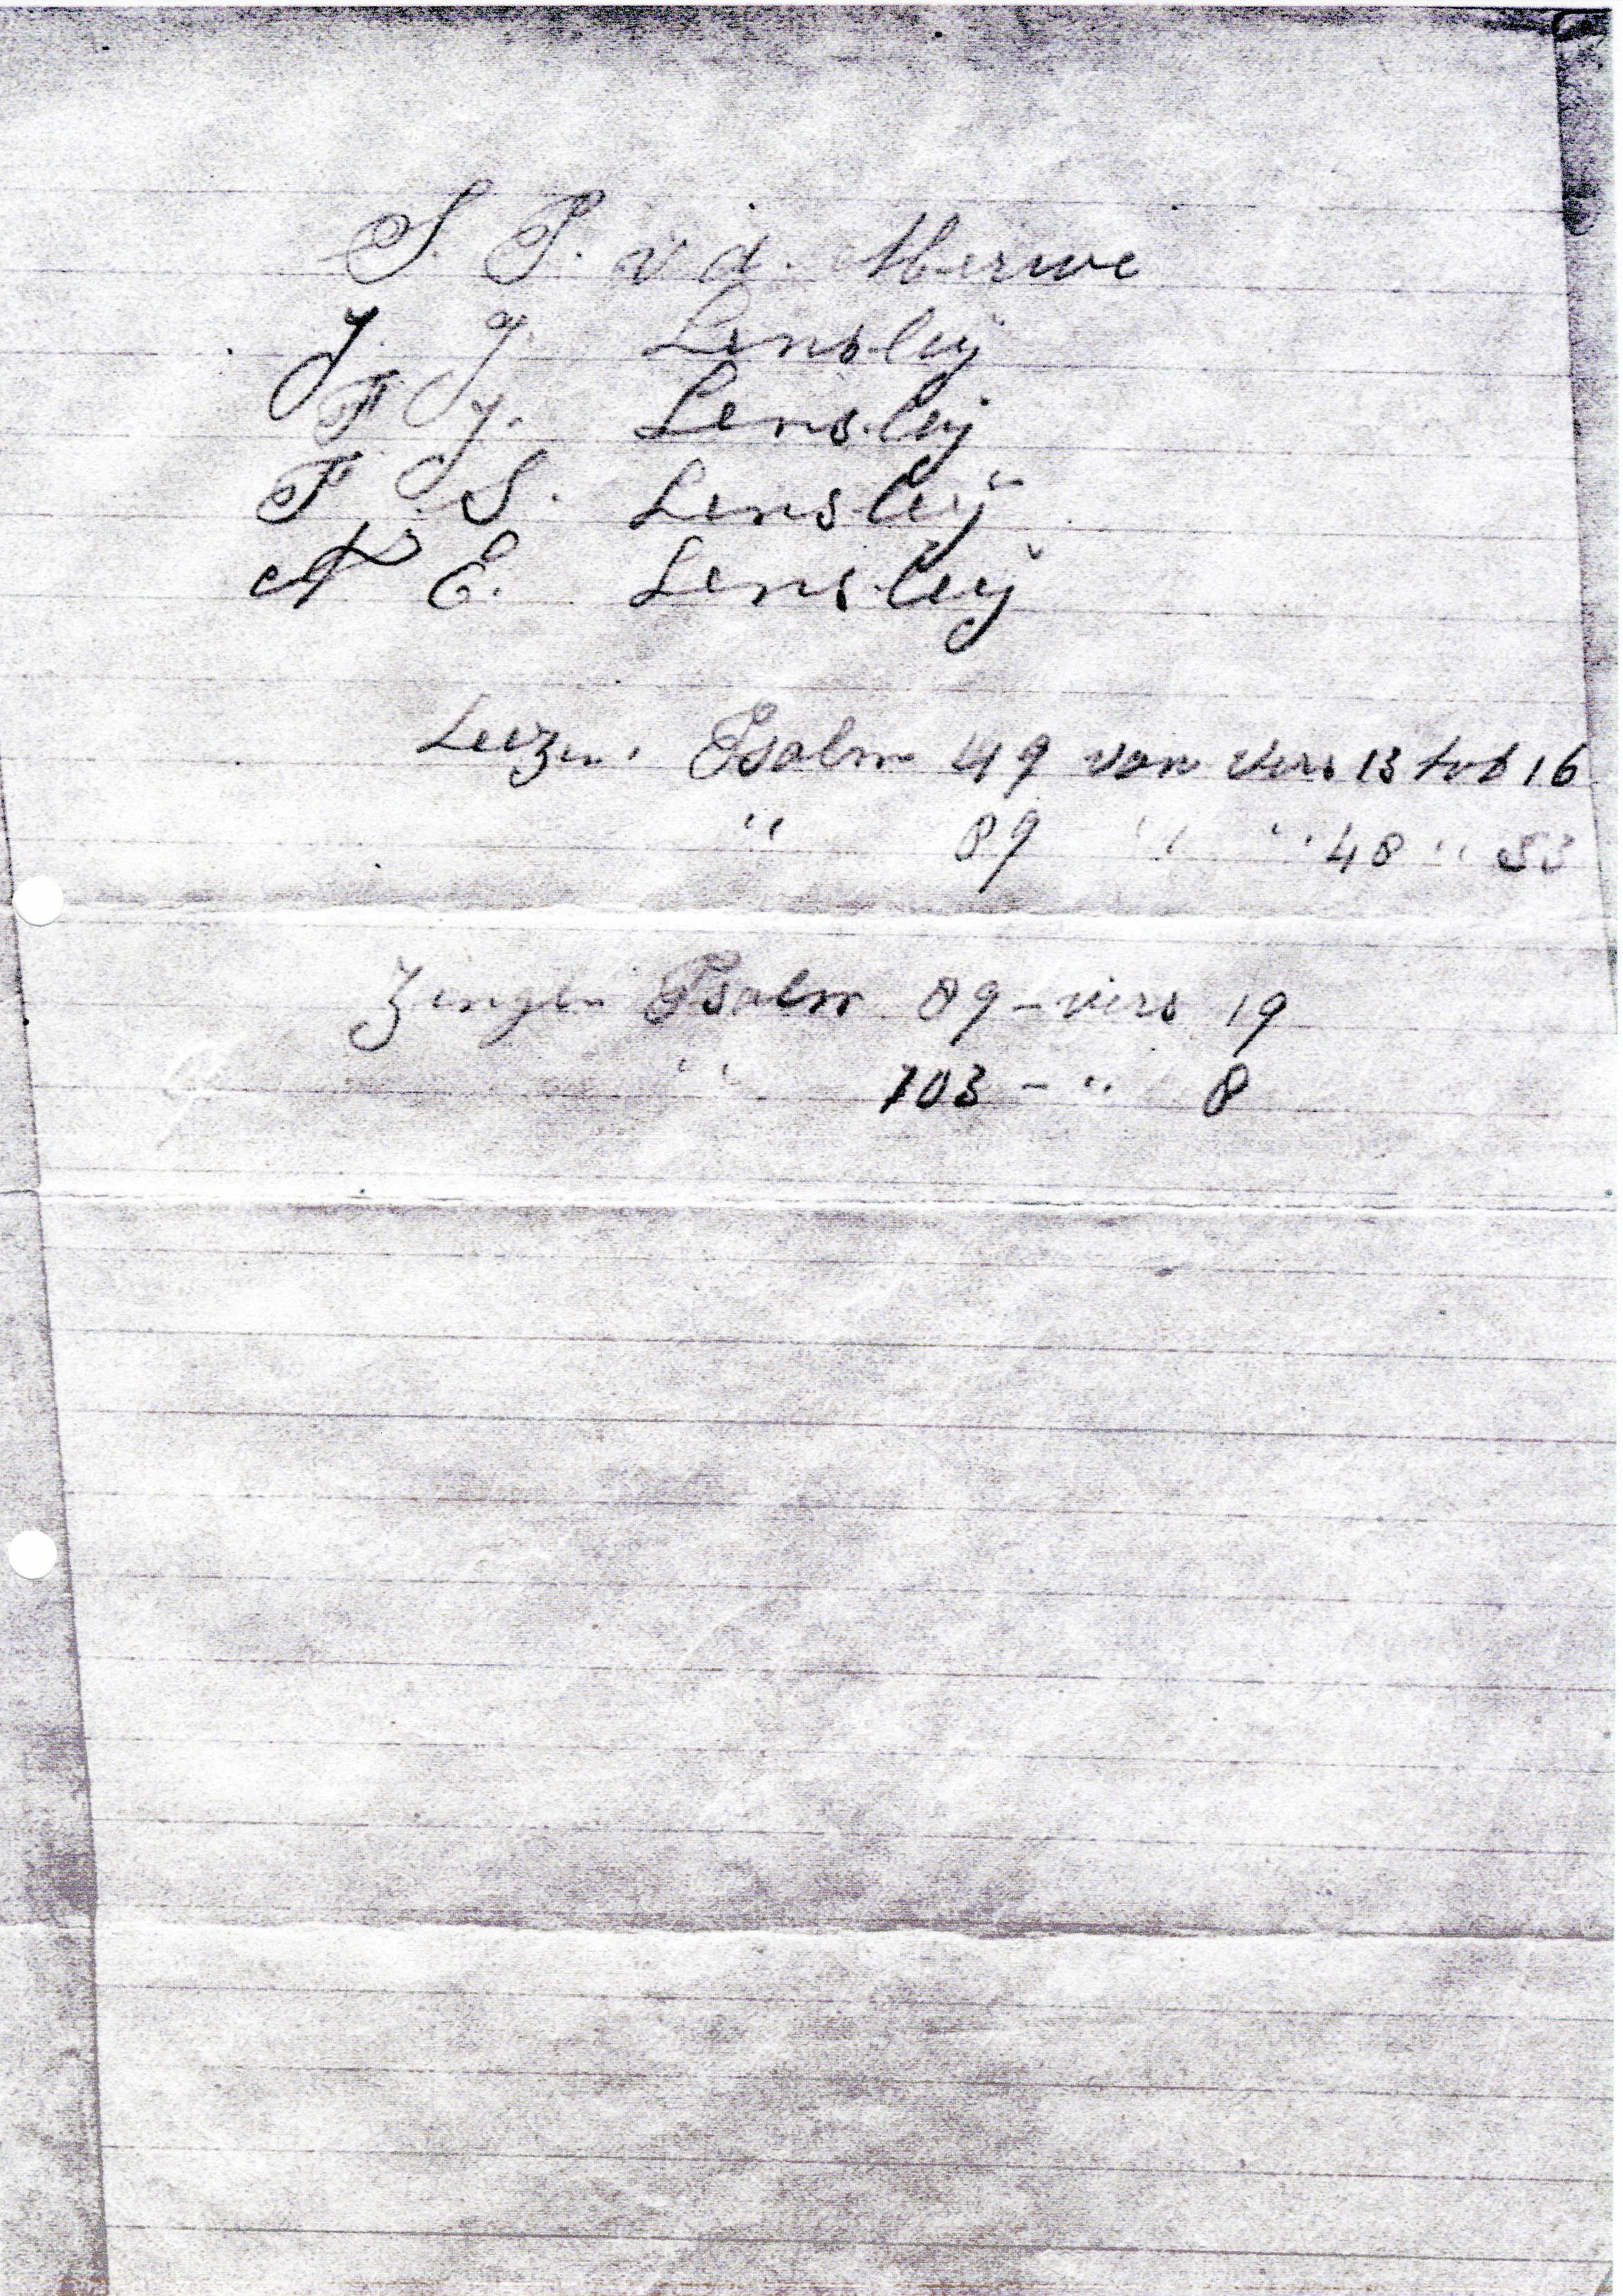 S. P. v d. Merwe
J. J. Lensleÿ
F J. Lensleÿ
F. S. Lensleÿ
N E. Lensleÿ
Leezen. Psalm 49 van vers 13 tot 16
" 89 " " 48 " 53
Zengen Psalm 89 - vers 19
" 103 - " 8